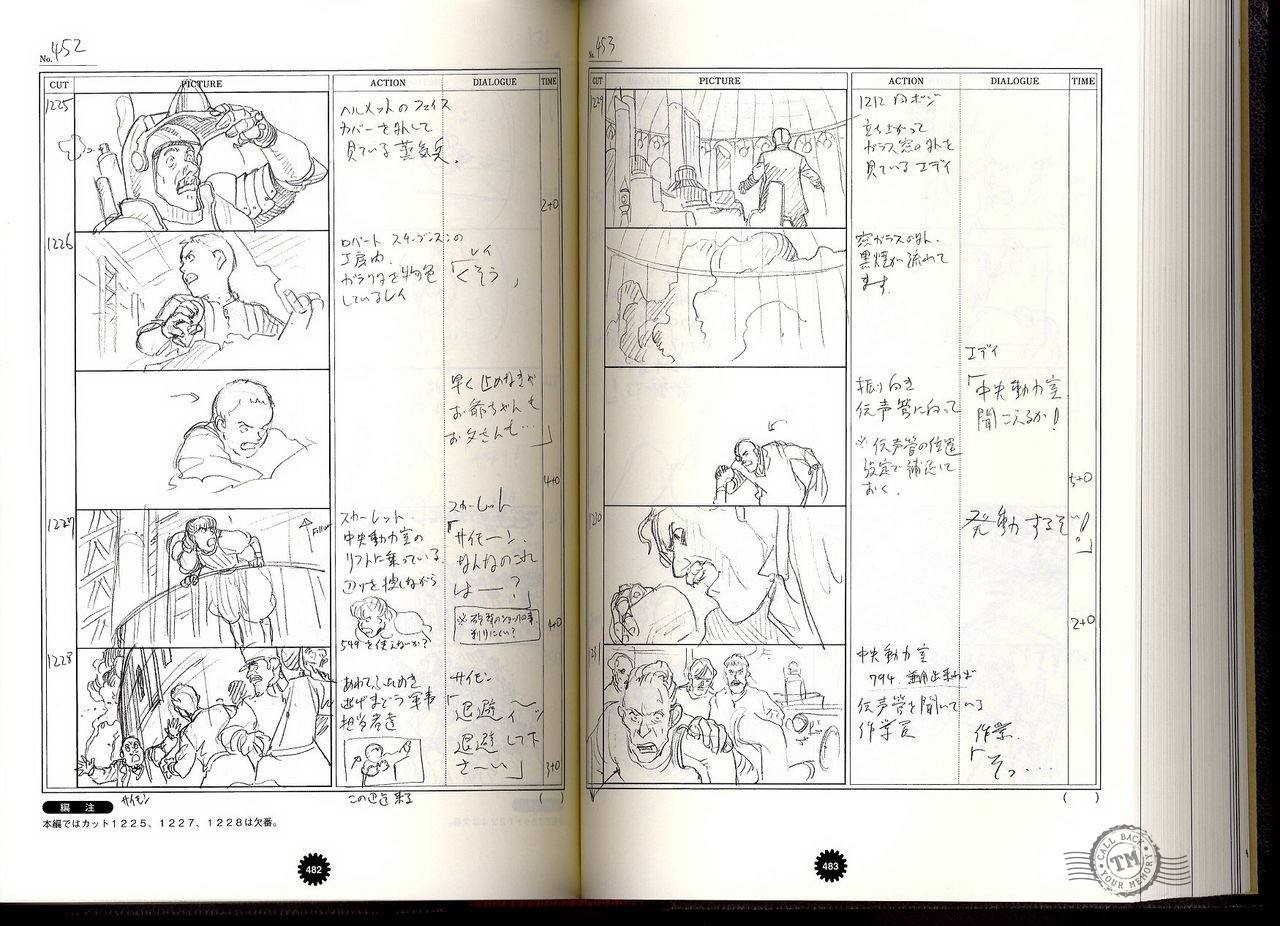 No. 452
CUT PICTURE ACTION DIALOGUE TIME
1225
ヘルメットのフェイス
カバーを外して
見ている蒸気兵.
2+0
1226
ロバート スチーブンスンの
工房内.
ガラクタを物色
しているレイ
レイ
「くそう,
早く止めなきゃ
お爺ちゃんも
お父さんも…」
4+0
1227
Follow
スカーレット.
中央動力室の
リフトに乗っている.
辺りを捜しながら
スカーレット
「サイモーン.
なんなのこれ
はー?」
4+0
1228
あわてふためき
逃げまどう軍事
担当者達
サイモン
「退避ィーッ
退避して下
さーい」
3+0
サイモン
( )
編 注
本編ではカット1225、1227、1228は欠番。
482
No. 453
CUT PICTURE ACTION DIALOGUE TIME
1229
1212 同ポジ
立ち上がって
ガラス窓の外を
見ているエディ
窓ガラスの外.
黒煙が流れて
ます.
振り向き
伝声管に向って
※伝声管の位置
設定で補正して
おく.
エディ
「中央動力室.
聞こえるか!
5+0
1230
発動するぞ!!」
2+0
中央動力室
伝声管を聞いている
作業員
作業.
「そっ…
( )
483
CALL BACK
TM
YOUR MEMORY